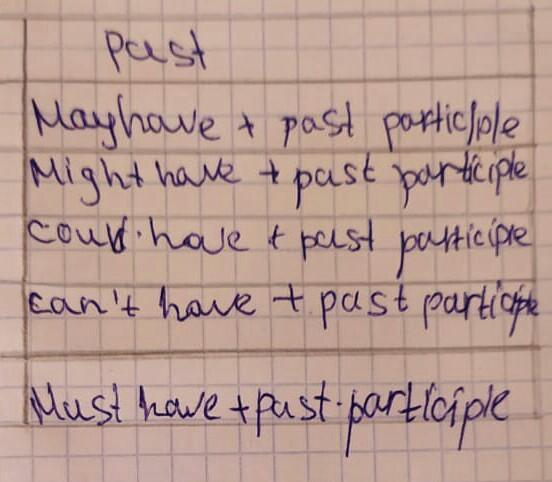 past
May have + past participle
Might have + past participle
could have + past participle
can't have + past participle
Must have + past participle